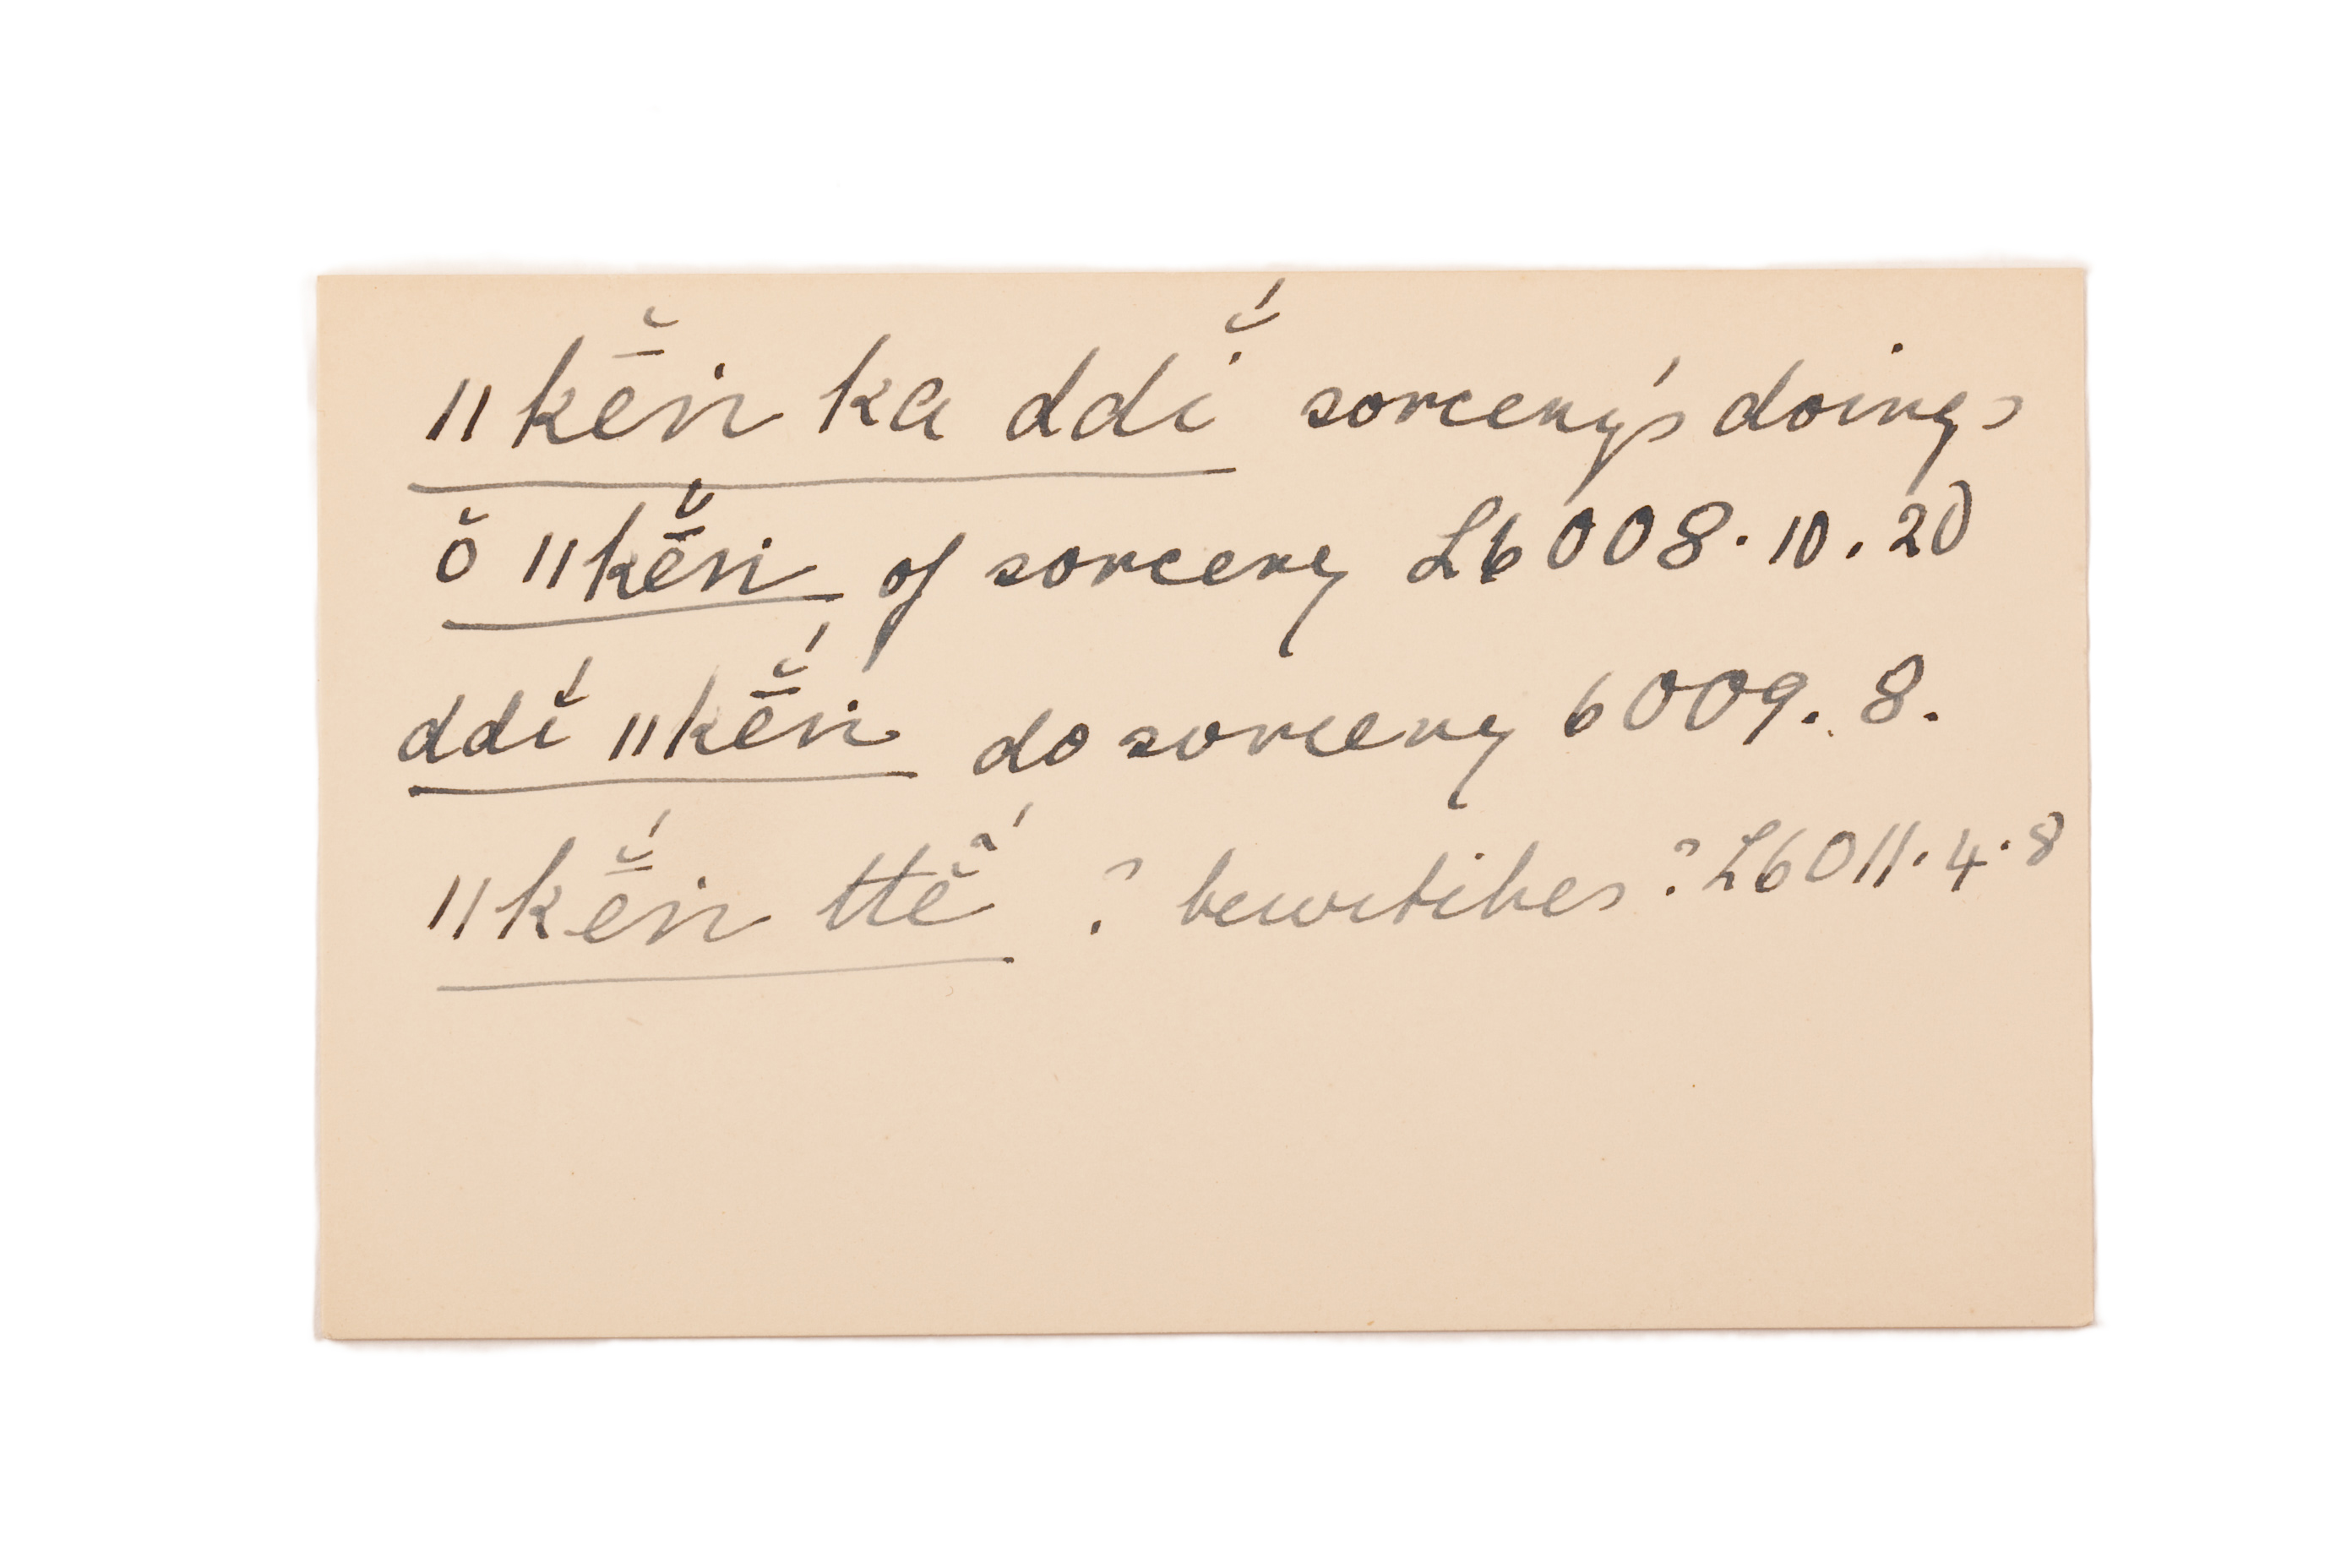 ǁkē̆n ka ddĭ́ sorcery's doings
ŏ ǁkē̆́n of sorcery L6008.10.20
ddĭ́ ǁkē̆́n do sorcery 6009. 8.
ǁkē̆́n ttĕ́ ? bewitches ? L6011.4.8